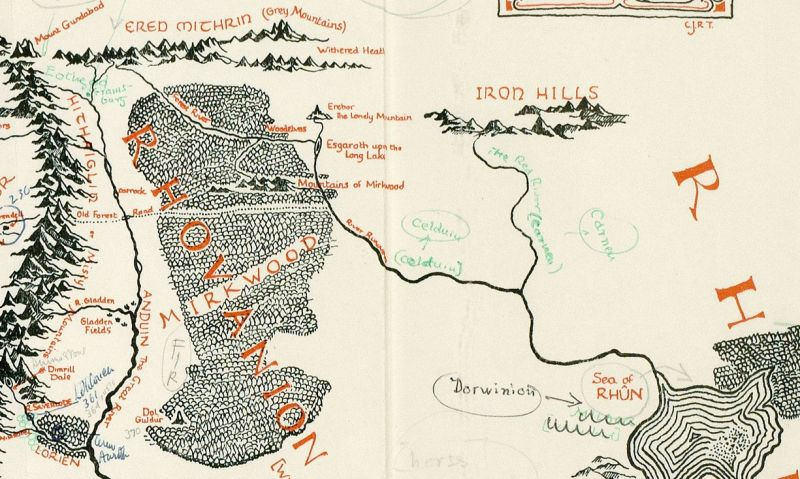 Mount Gundabad
ERED MITHRIN (Grey Mountains)
Withered Heath
C.J.R.T.
Framsburg
IRON HILLS
Forest River
Erebor
The Lonely Mountain
Woodelves
Esgaroth upon the
Long Lake
HITHAIGLIN
236
The Red River (Carnen)
Mountains of Mirkwood
Old Forest Road
RHOVANION
Carnen
Celduin
(Celduin)
River Running
Misty
Mountains
MIRKWOOD
R. Gladden
Gladden
Fields
ANDUIN The Great River
FIR
RH
Dimrill
Dale
Dorwinion
Sea of
RHÛN
R. Silverlode
Dol
Guldur
370
LORIEN
horss